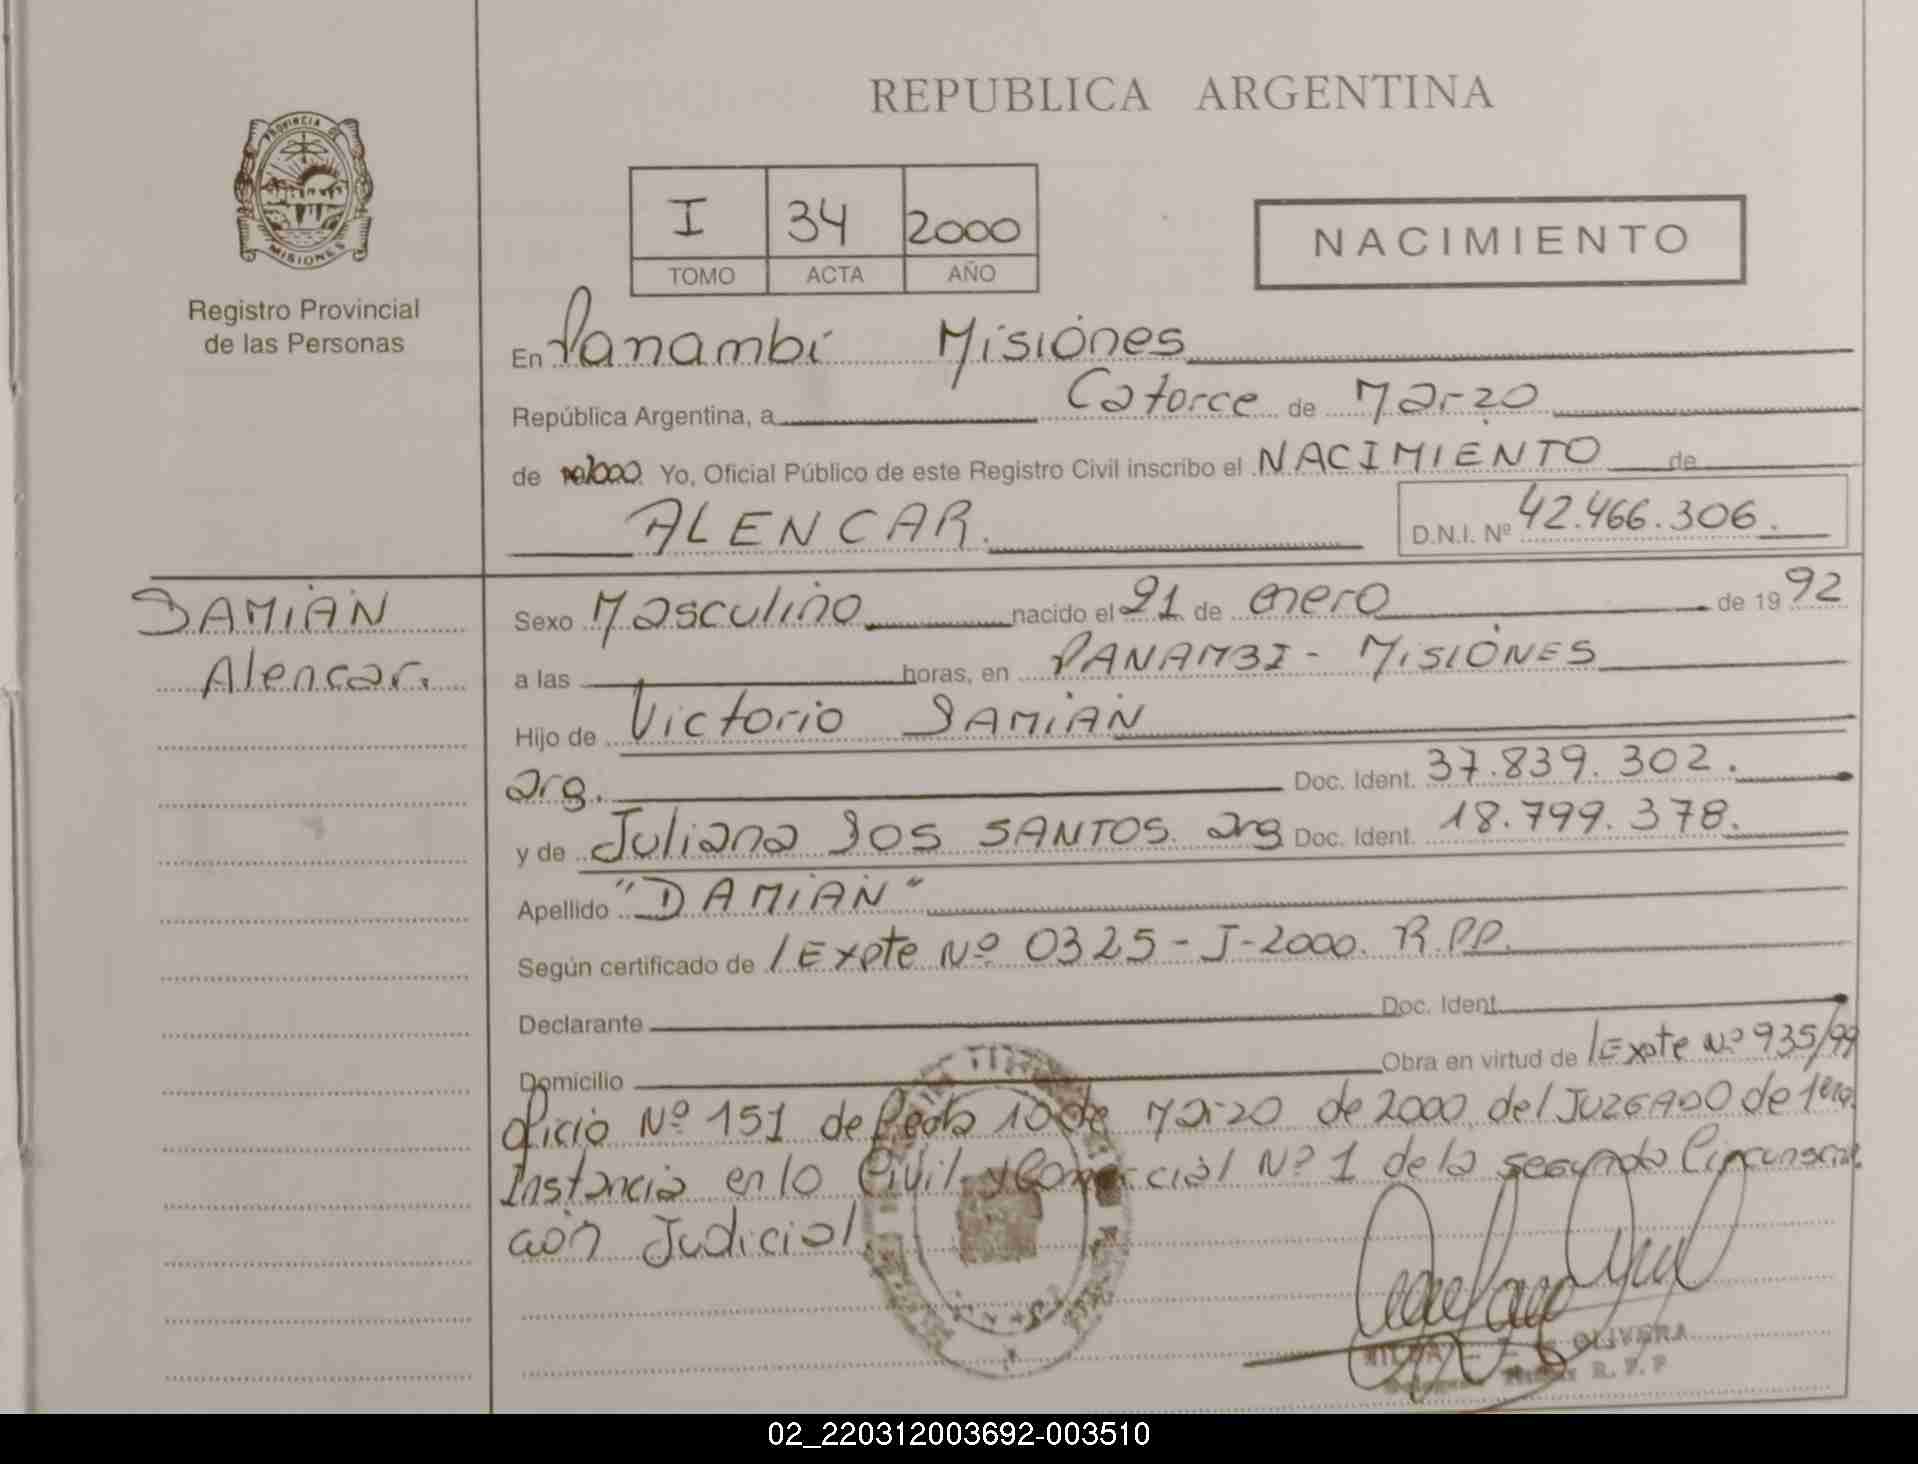 REPUBLICA ARGENTINA
PROVINCIA DE
MISIONES
Registro Provincial
de las Personas
I 34 2000
TOMO ACTA AÑO
NACIMIENTO
En Panambí Misiones
República Argentina, a Catorce de Marzo
de Yo, Oficial Público de este Registro Civil inscribo el NACIMIENTO de
ALENCAR.
D.N.I. Nº 42.466.306.
DAMIAN
Alencar.
Sexo Masculino nacido el 21 de enero de 1992
a las horas, en PANAMBI - MISIONES
Hijo de Victorio DAMIAN
arg. Doc. Ident. 37.839.302.
y de Juliana DOS SANTOS. arg Doc. Ident. 18.799.378.
Apellido "DAMIAN"
Según certificado de Expte Nº 0325-J-2000. R.P.P.
Declarante Doc. Ident.
Domicilio Obra en virtud de Expte Nº 935/99
Oficio Nº 151 de fecha 10 de Marzo de 2000, del JUZGADO de 1era.
Instancia en lo Civil y Comercial Nº 1 de la segunda Circunscri
ción Judicial.
OLIVERA
R. P. P
02_220312003692-003510